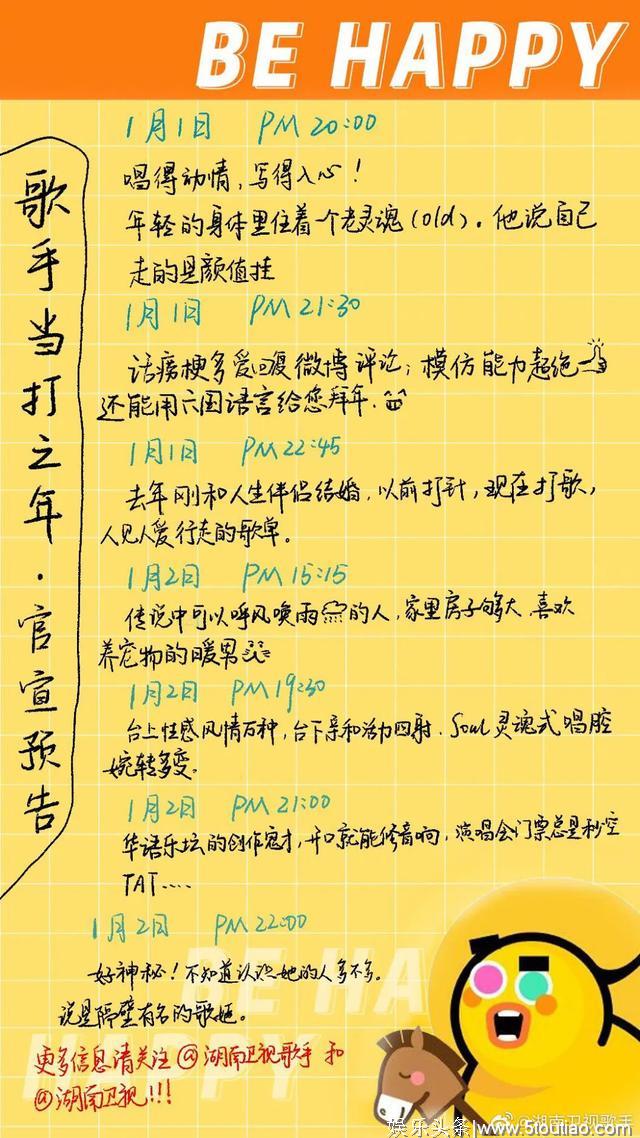 BE HAPPY
歌手当打之年·官宣预告
1月1日 PM 20:00
唱得动情,写得入心!
年轻的身体里住着一个老灵魂(old).他说自己
走的是颜值挂
1月1日 PM 21:30
话痨梗多爱回复微博评论;模仿能力超绝
还能用六国语言给您拜年.
1月1日 PM 22:45
去年刚和人生伴侣结婚,以前打针,现在打歌,
人见人爱行走的歌单。
1月2日 PM 15:15
传说中可以呼风唤雨的人,家里房子够大,喜欢
养宠物的暖男
1月2日 PM 19:30
台上性感风情万种,台下亲和活力四射.Soul灵魂式唱腔
婉转多变.
1月2日 PM 21:00
华语乐坛的创作鬼才,开口就能修音响,演唱会门票总是秒空
TAT....
1月2日 PM 22:00
好神秘!不知道认识她的人多不多。
说是隔壁有名的歌姬。
BE HA
HAPPY
更多信息请关注@湖南卫视歌手 和
@湖南卫视!!!
@湖南卫视歌手
娱乐头条 www.5toutiao.com